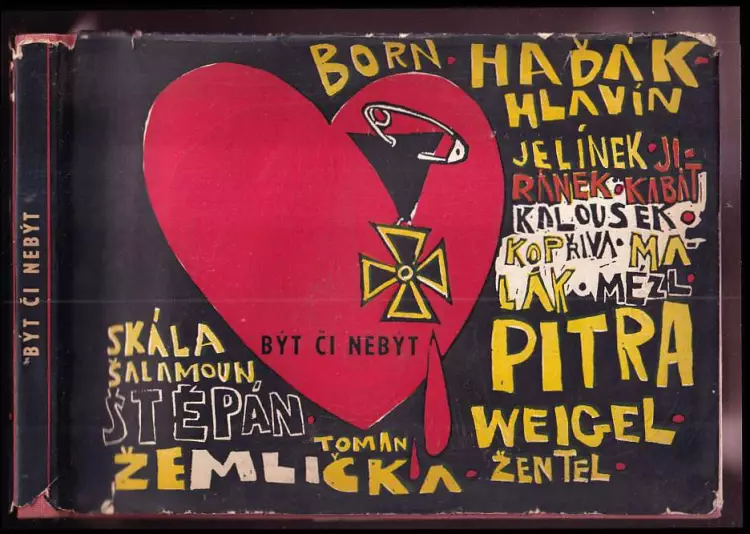 BÝT ČI NEBÝT
BORN · HAĎÁK ·
HLAVÍN
JELÍNEK · JI-
RÁNEK · KABÁT
KALOUSEK ·
KOPŘIVA · MA-
LÁK · MÉZL ·
PITRA
WEIGEL ·
ŽENTEL ·
BÝT ČI NEBÝT
SKÁLA
ŠALAMOUN
ŠTĚPÁN ·
TOMAN
ŽEMLIČKA ·